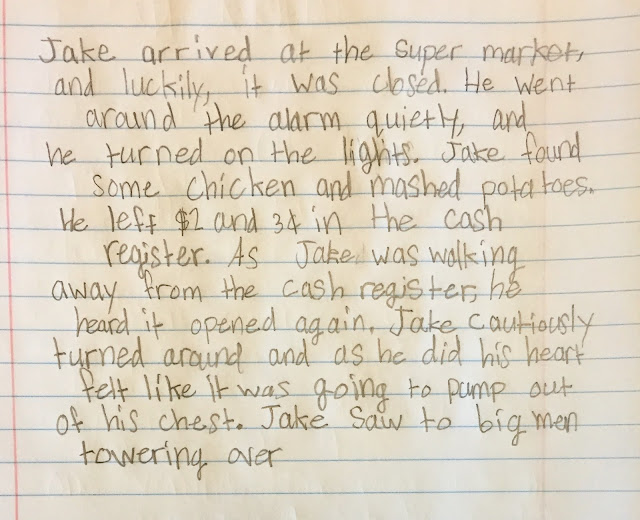 Jake arrived at the super market,
and luckily, it was closed. He went
around the alarm quietly, and
he turned on the lights. Jake found
some chicken and mashed potatoes.
He left $2 and 3¢ in the cash
register. As Jake was walking
away from the cash register, he
heard it opened again. Jake cautiously
turned around and as he did his heart
felt like it was going to pump out
of his chest. Jake saw to big men
towering over